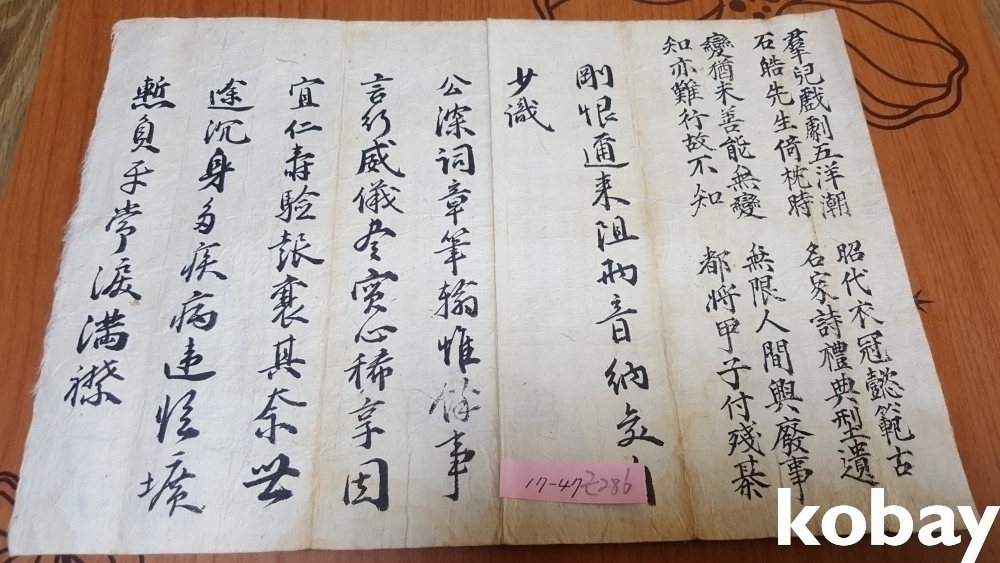 羣兒戲劇五洋潮
石皓先生倚枕時
變猶未善能無變
知亦難行故不知
昭代衣冠懿範古
名家詩禮典型遺
無限人間興廢事
都將甲子付殘棊
剛恨邇來阻兩音納交
少識
公深詞章筆翰惟餘事
言行威儀尽實心稀享固
宜仁壽驗報襄其奈世
途沉身多疾病違臨壙
慙負平常淚滿襟
17-47근286
kobay